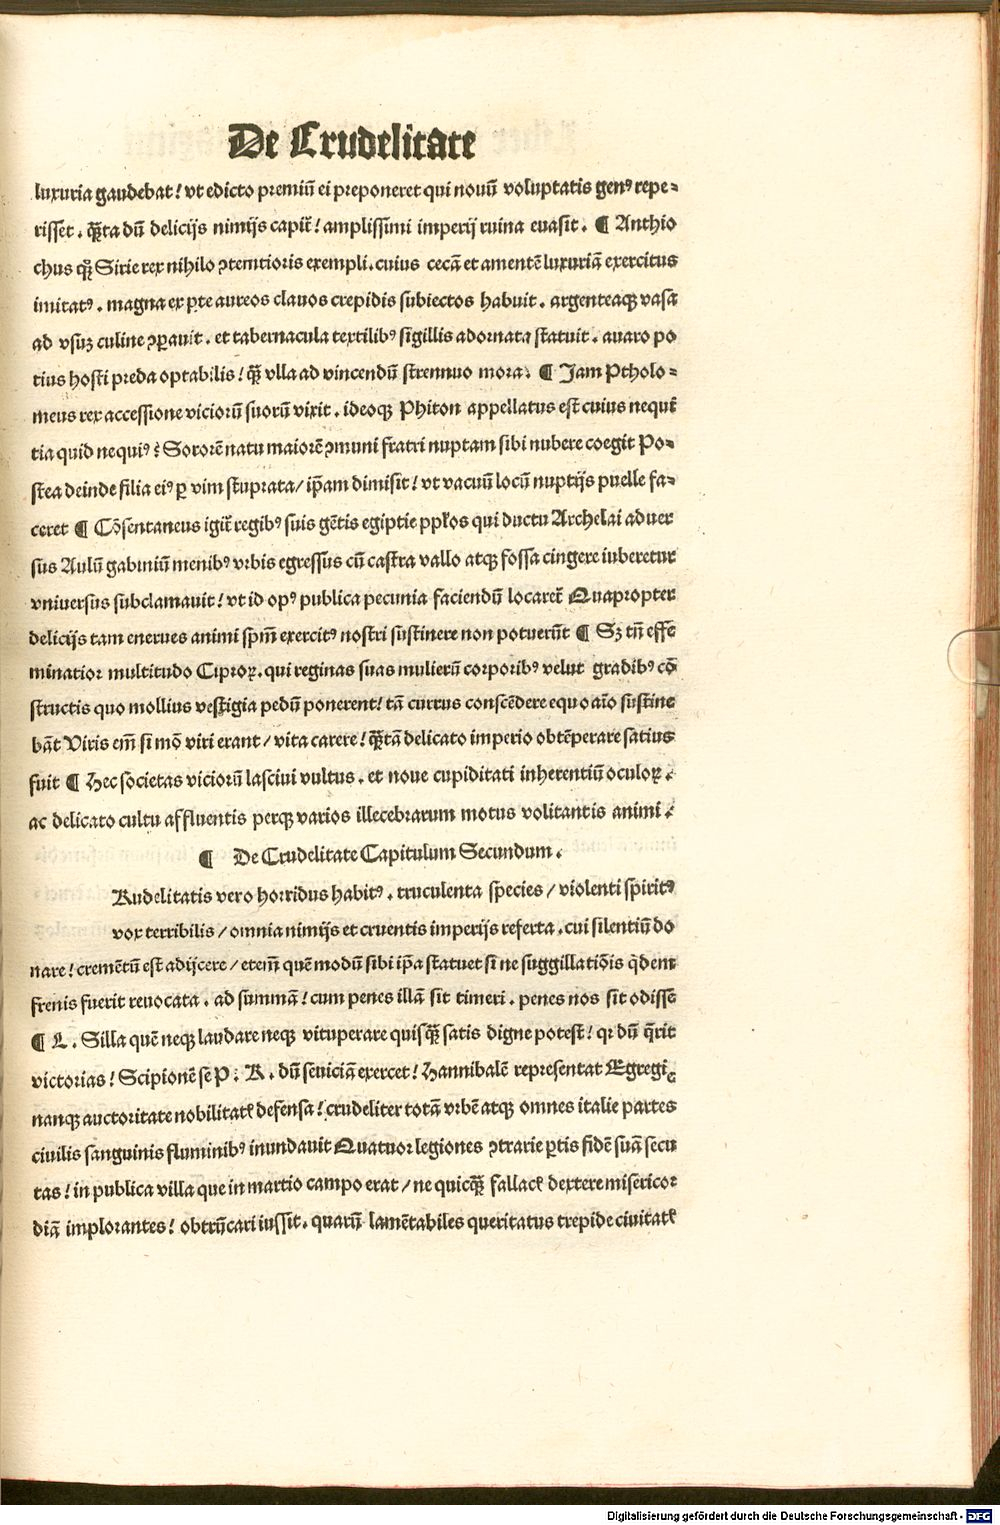 De Crudelitate
luxuria gaudebat! vt edicto premiū ei preponeret qui nouū voluptatis genꝰ repe⸗
risset . q̄ꝫta dū delicijs nimijs capit̄! amplissimi imperij ruina euasit . ¶ Anthio
chus q̄ꝫ Sirie rex nihilo ꝯtentioris exempli . cuius cecā et amentē luxuriā exercitus
imitatꝰ . magna ex ꝑte aureos clauos crepidis subiectos habuit . argenteaqꝫ vasa
ad vsuꝫ culine ꝯꝑauit . et tabernacula textilibꝰ sigillis adornata statuit . auaro po
tius hosti preda optabilis! q̄ꝫ vlla ad vincendū strennuo mora . ¶ Jam Ptholo⸗
meus rex accessione viciorū suorū vixit . ideoqꝫ Phiton appellatus est cuius nequi
tia quid nequiꝰ? Sororē natu maiorē ꝯmuni fratri nuptam sibi nubere coegit Po⸗
stea deinde filia eiꝰ ꝑ vim stuprata/ ip̄am dimisit! vt vacuū locū nuptijs puelle fa⸗
ceret ¶ Cōsentaneus igit̄ regibꝰ suis gētis egiptie pplos qui ductu Archelai aduer
sus Aulū gabiniū menibꝰ vrbis egressus cū castra vallo atqꝫ fossa cingere iuberetur
vniuersus subclamauit! vt id opꝰ publica pecunia faciendū locaret̄ Quapropter
delicijs tam enerues animi spm̄ exercitꝰ nostri sustinere non potuerūt ¶ Sꝫ tn̄ effe
minatior multitudo Ciproꝝ . qui reginas suas mulierū corporibꝰ velut gradibꝰ cō
structis quo mollius vestigia pedū ponerent! tā currus conscēdere equo aīo sustine
bāt Viris em̄ si mō viri erant/ vita carere! q̄ꝫtā delicato imperio obtēperare satius
fuit ¶ Hec societas viciorū lasciui vultus . et noue cupiditati inherentiū oculoꝝ .
ac delicato cultu affluentis perqꝫ varios illecebrarum motus volitantis animi .
¶ De Crudelitate Capitulum Secundum .
Rudelitatis vero horridus habitꝰ . truculenta species / violenti spiritꝰ
vox terribilis / omnia nimijs et cruentis imperijs referta . cui silentiū do
nare! cremētū est adijcere / etem̄ quē modū sibi ip̄a statuet si ne suggillatiōis q̇dem
frenis fuerit reuocata . ad summā! cum penes illā sit timeri . penes nos sit odisse
¶ L . Silla quē neqꝫ laudare neqꝫ vituperare quisq̄ꝫ satis digne potest! qꝛ dū q̄rit
victorias! Scipionē se P . R . dū seuiciā exercet! Hannibalē representat Egregie
nanqꝫ auctoritate nobilitatꝭ defensa! crudeliter totā vrbē atqꝫ omnes italie partes
ciuilis sanguinis fluminibꝰ inundauit Quatuor legiones ꝯtrarie ꝑtis fidē suā secu
tas! in publica villa que in martio campo erat / ne quicq̄ꝫ fallacꝭ dextere misericor
diā implorantes! obtrūcari iussit . quarū lamētabiles queritatus trepide ciuitatꝭ
Digitalisierung gefördert durch die Deutsche Forschungsgemeinschaft - DFG